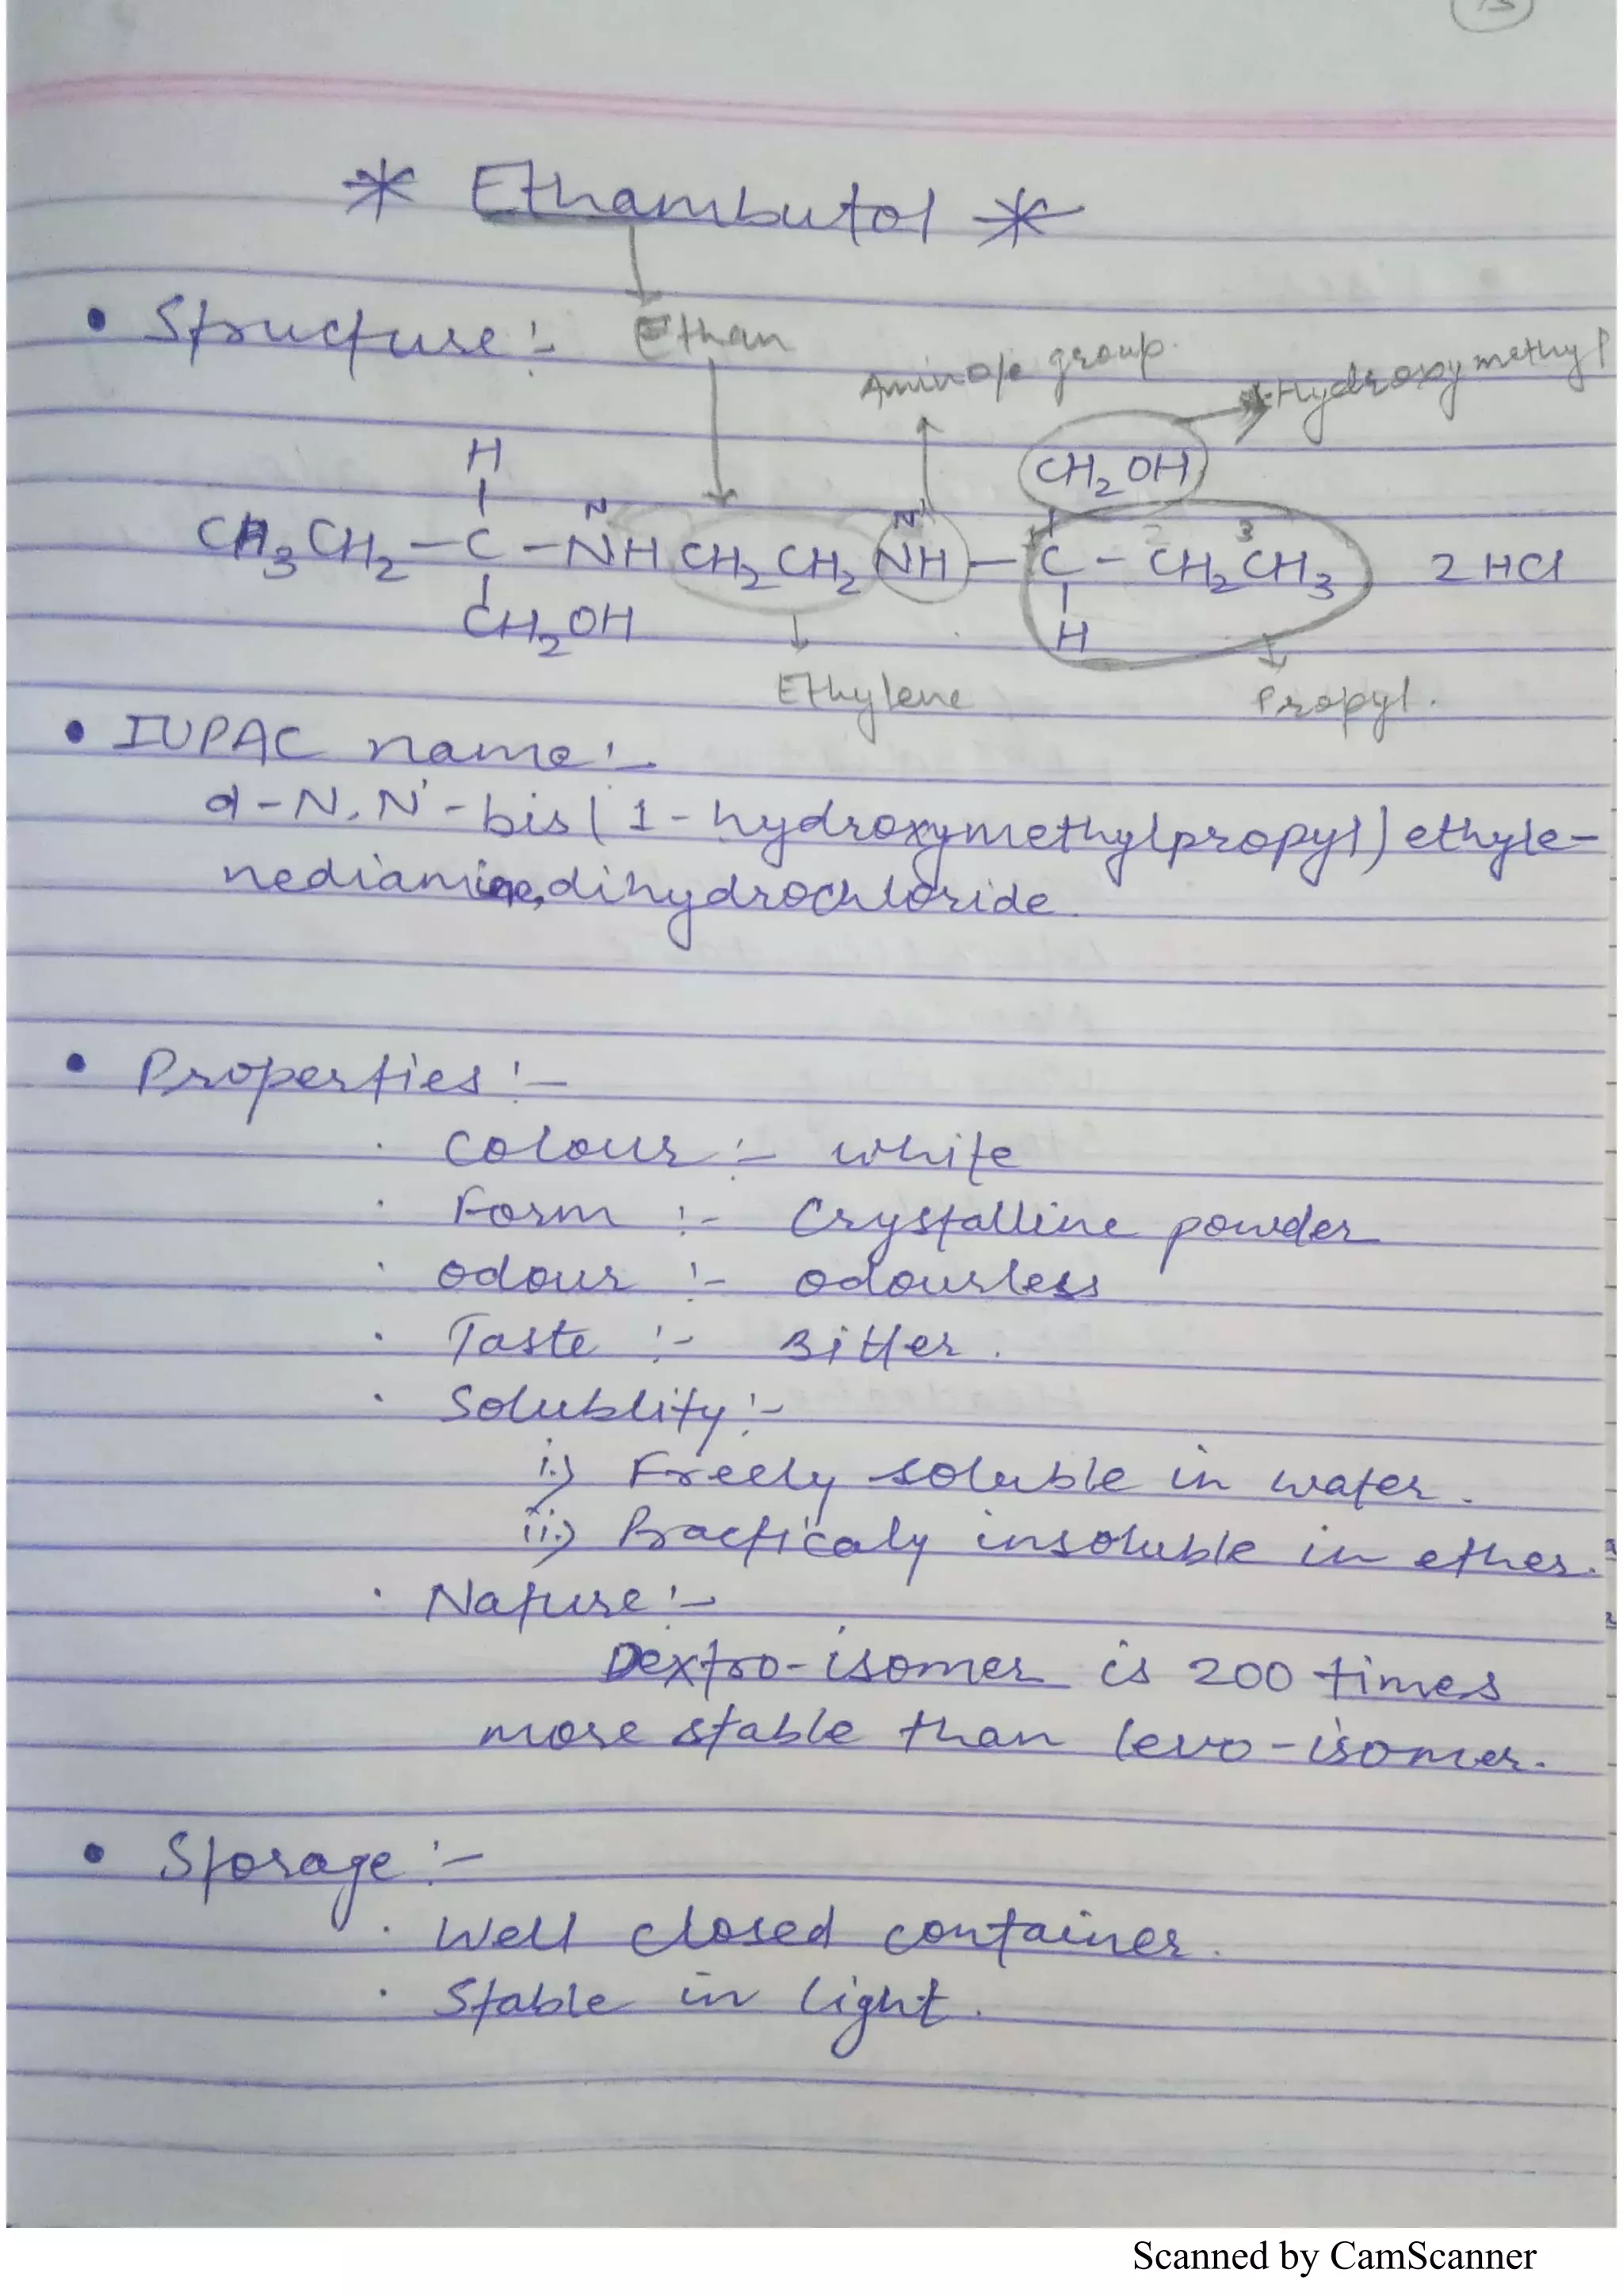 * Ethambutol *
• Structure :- Ethan
Amino group.
Hydroxymethyl
H
CH2OH
N N'
1 2 3
CH3CH2 - C - NH CH2 CH2 NH - C - CH2 CH3 2 HCl
CH2OH H
Ethylene Propyl.
• IUPAC name :-
d-N,N'-bis(1-hydroxymethylpropyl)ethyle-
nediamine, dihydrochloride.
• Properties :-
· Colour :- white
· Form :- Crystalline powder
· odour :- odourless
· Taste :- Bitter.
· Solublity :-
i.) Freely soluble in water.
ii.) Practicaly insoluble in ether.
· Nature :-
Dextro-isomer is 200 times
more stable than levo-isomer.
• Storage :-
· Well closed container.
· Stable in light.
Scanned by CamScanner